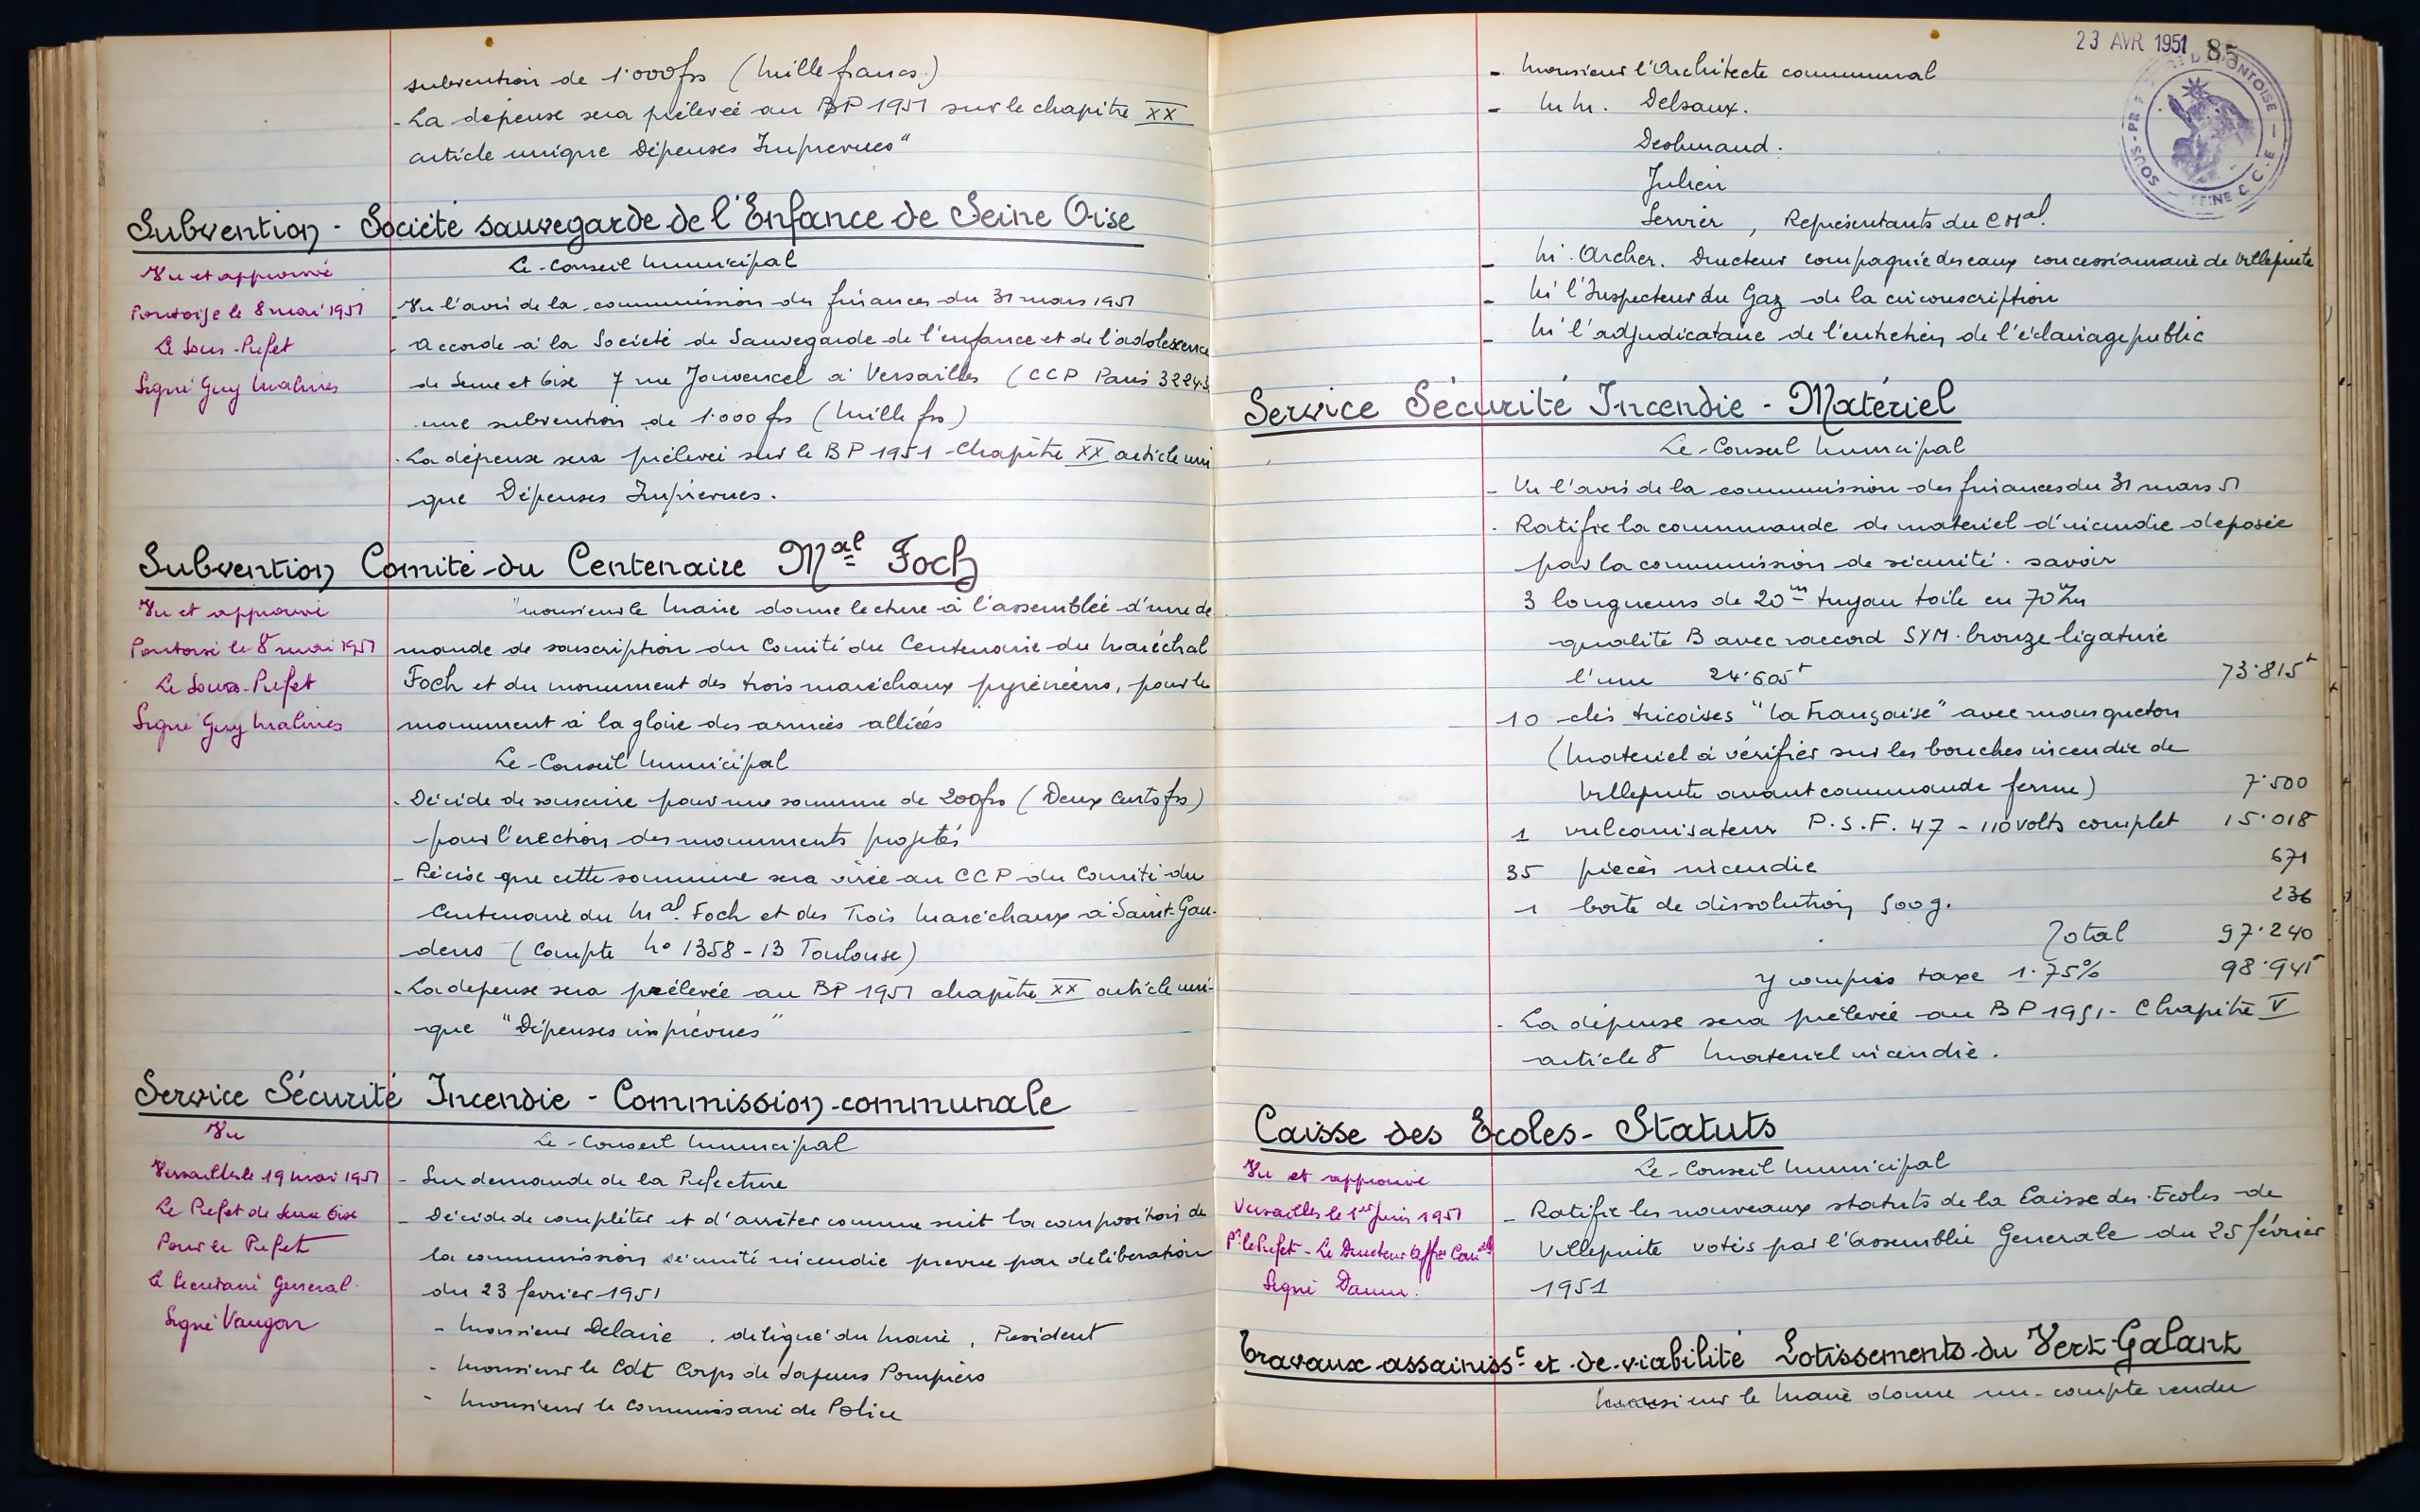 subvention de 1.000frs (Mille francs)
- La dépense sera prélevée au BP 1951 sur le chapitre XX
article unique Dépenses Imprévues"
Subvention - Société sauvegarde de l'Enfance de Seine Oise
Vu et approuvé
Pontoise le 8 mai 1951
Le Sous-Préfet
Signé Guy Malines
Le Conseil Municipal
- Vu l'avis de la commission des finances du 31 mars 1951
- Accorde à la Société de Sauvegarde de l'enfance et de l'adolescence
de Seine et Oise 7 rue Jouvencel à Versailles (CCP Paris 3224.3
une subvention de 1.000 frs (Mille frs)
- La dépense sera prélevée sur le BP 1951 Chapitre XX article uni
que Dépenses Imprévues.
Subvention Comité du Centenaire Mal Foch
Vu et approuvé
Pontoise le 8 mai 1951
Le Sous-Préfet
Signé Guy Malines
"Monsieur le Maire donne lecture à l'assemblée d'une de
mande de souscription du Comité du Centenaire du Maréchal
Foch et du monument des trois maréchaux pyrénéens, pour le
monument à la gloire des armées alliées
Le Conseil Municipal
- Décide de souscrire pour une somme de 200frs (Deux Cents frs)
pour l'érection des monuments projetés
- Précise que cette somme sera virée au CCP du Comité du
Centenaire du Mal. Foch et des Trois Maréchaux à Saint-Gau-
dens (Compte No 1358-13 Toulouse)
- La dépense sera prélevée au BP 1951 chapitre XX article uni-
que "Dépenses imprévues"
Service Sécurité Incendie - Commission communale
Vu
Versailles le 19 mai 1951
Le Préfet de Seine Oise
Pour le Préfet
Le Secrétaire Général
Signé Vaugon
Le Conseil Municipal
- Sur demande de la Préfecture
- Décide de compléter et d'arrêter comme suit la composition de
la commission sécurité incendie prévue par délibération
du 23 février 1951
- Monsieur Delaire, délégué du Maire, Président
- Monsieur le Cdt Corps de Sapeurs Pompiers
- Monsieur le Commissaire de Police
23 AVR 1951 85
SOUS-PREFECTURE DE PONTOISE
- Monsieur l'Architecte communal
- M M. Delsaux.
Deshuraud.
Julien
Servier, Représentants du C Mal.
- M. Archer. Directeur compagnie des eaux concessionnaire de Villepinte
- M l'Inspecteur du Gaz de la circonscription
- M l'adjudicataire de l'entretien de l'éclairage public
Service Sécurité Incendie - Matériel
Le Conseil Municipal
- Vu l'avis de la commission des finances du 31 mars 51
- Ratifie la commande de matériel d'incendie déposée
par la commission de sécurité. savoir
3 longueurs de 20m tuyau toile en 70 m/m
qualité B avec raccord SYM. bronze ligaturé
l'une 24.605f 73.815f
10 clés tricoises "la Française" avec mousqueton
(Matériel à vérifier sur les bouches incendie de
Villepinte avant commande ferme) 7.500
1 vulcanisateur P.S.F. 47 - 110 volts complet 15.018
35 pièces incendie 671
1 boîte de dissolution 500g. 236
Total 97.240
y compris taxe 1.75% 98.941f
- La dépense sera prélevée au BP 1951 - Chapitre V
article 8 Matériel incendie.
Caisse des Ecoles - Statuts
Vu et approuvé
Versailles le 1er Juin 1951
Pr le Préfet - Le Directeur Affres Comales
Signé Damm.
Le Conseil Municipal
- Ratifie les nouveaux statuts de la Caisse des Ecoles de
Villepinte votés par l'Assemblée Générale du 25 février
1951
Travaux assainisst et de viabilité Lotissements du Vert-Galant
Monsieur le Maire donne un compte rendu